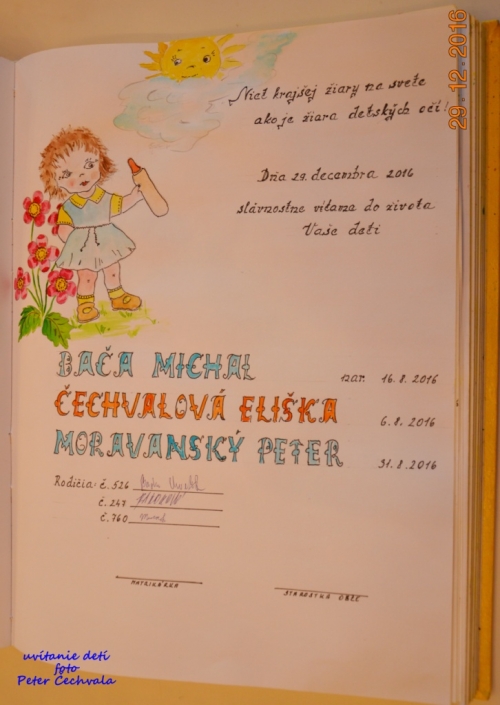 29.12.2016
Niet krajšej žiary na svete
ako je žiara detských očí!
Dňa 29. decembra 2016
slávnostne vítame do života
Vaše deti
BAČA MICHAL nar. 16.8.2016
ČECHVALOVÁ ELIŠKA 6.8.2016
MORAVANSKÝ PETER 31.8.2016
Rodičia: č. 526
č. 247
č. 760
MATRIKÁRKA STAROSTKA OBCE
uvítanie detí
foto
Peter Čechvala